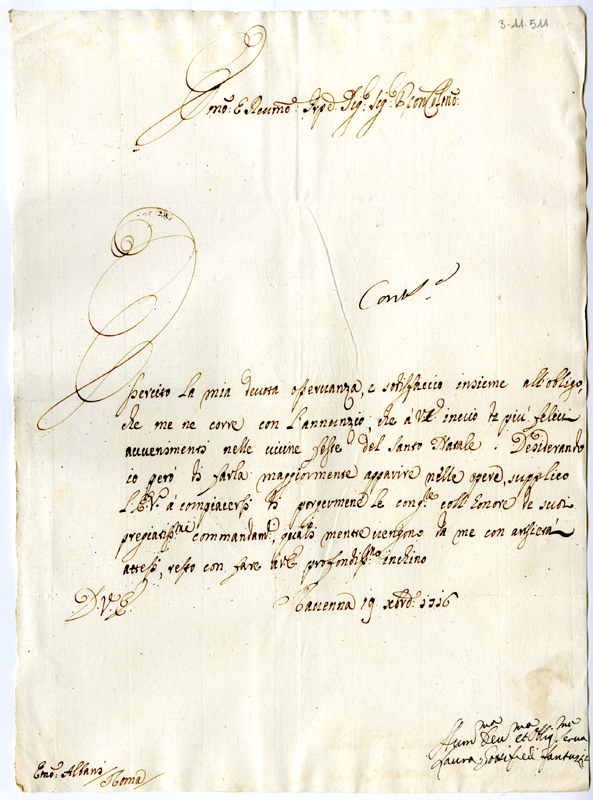 3-11-511
Emo: E Revmo: Sig: Sig: P̃ron Colmo:
Esercito la mia devota osservanza, e sodisfaccio insieme all'obligo,
che me ne corre con l'annunzio, che a V.E. invio di più felici
avvenimenti nelle vicine feste del Santo Natale. Desiderando
io però di farla maggiormente apparire nelle opere, supplico
l'E.V. à compiacersi di porgermene le cong.e coll'honore de suoi
pregiatiss.mi commandam.ti, quali mentre vengono da me con ansietà
attesi, resto con fare à V.E. profondiss.mo inchino
D. V. E.
Ravenna 19 xbre: 1716
Hum.ma Dev.ma et Obblig.ma Serva
Laura Gottifredi Fantuzzi
Emo: Albani / Roma